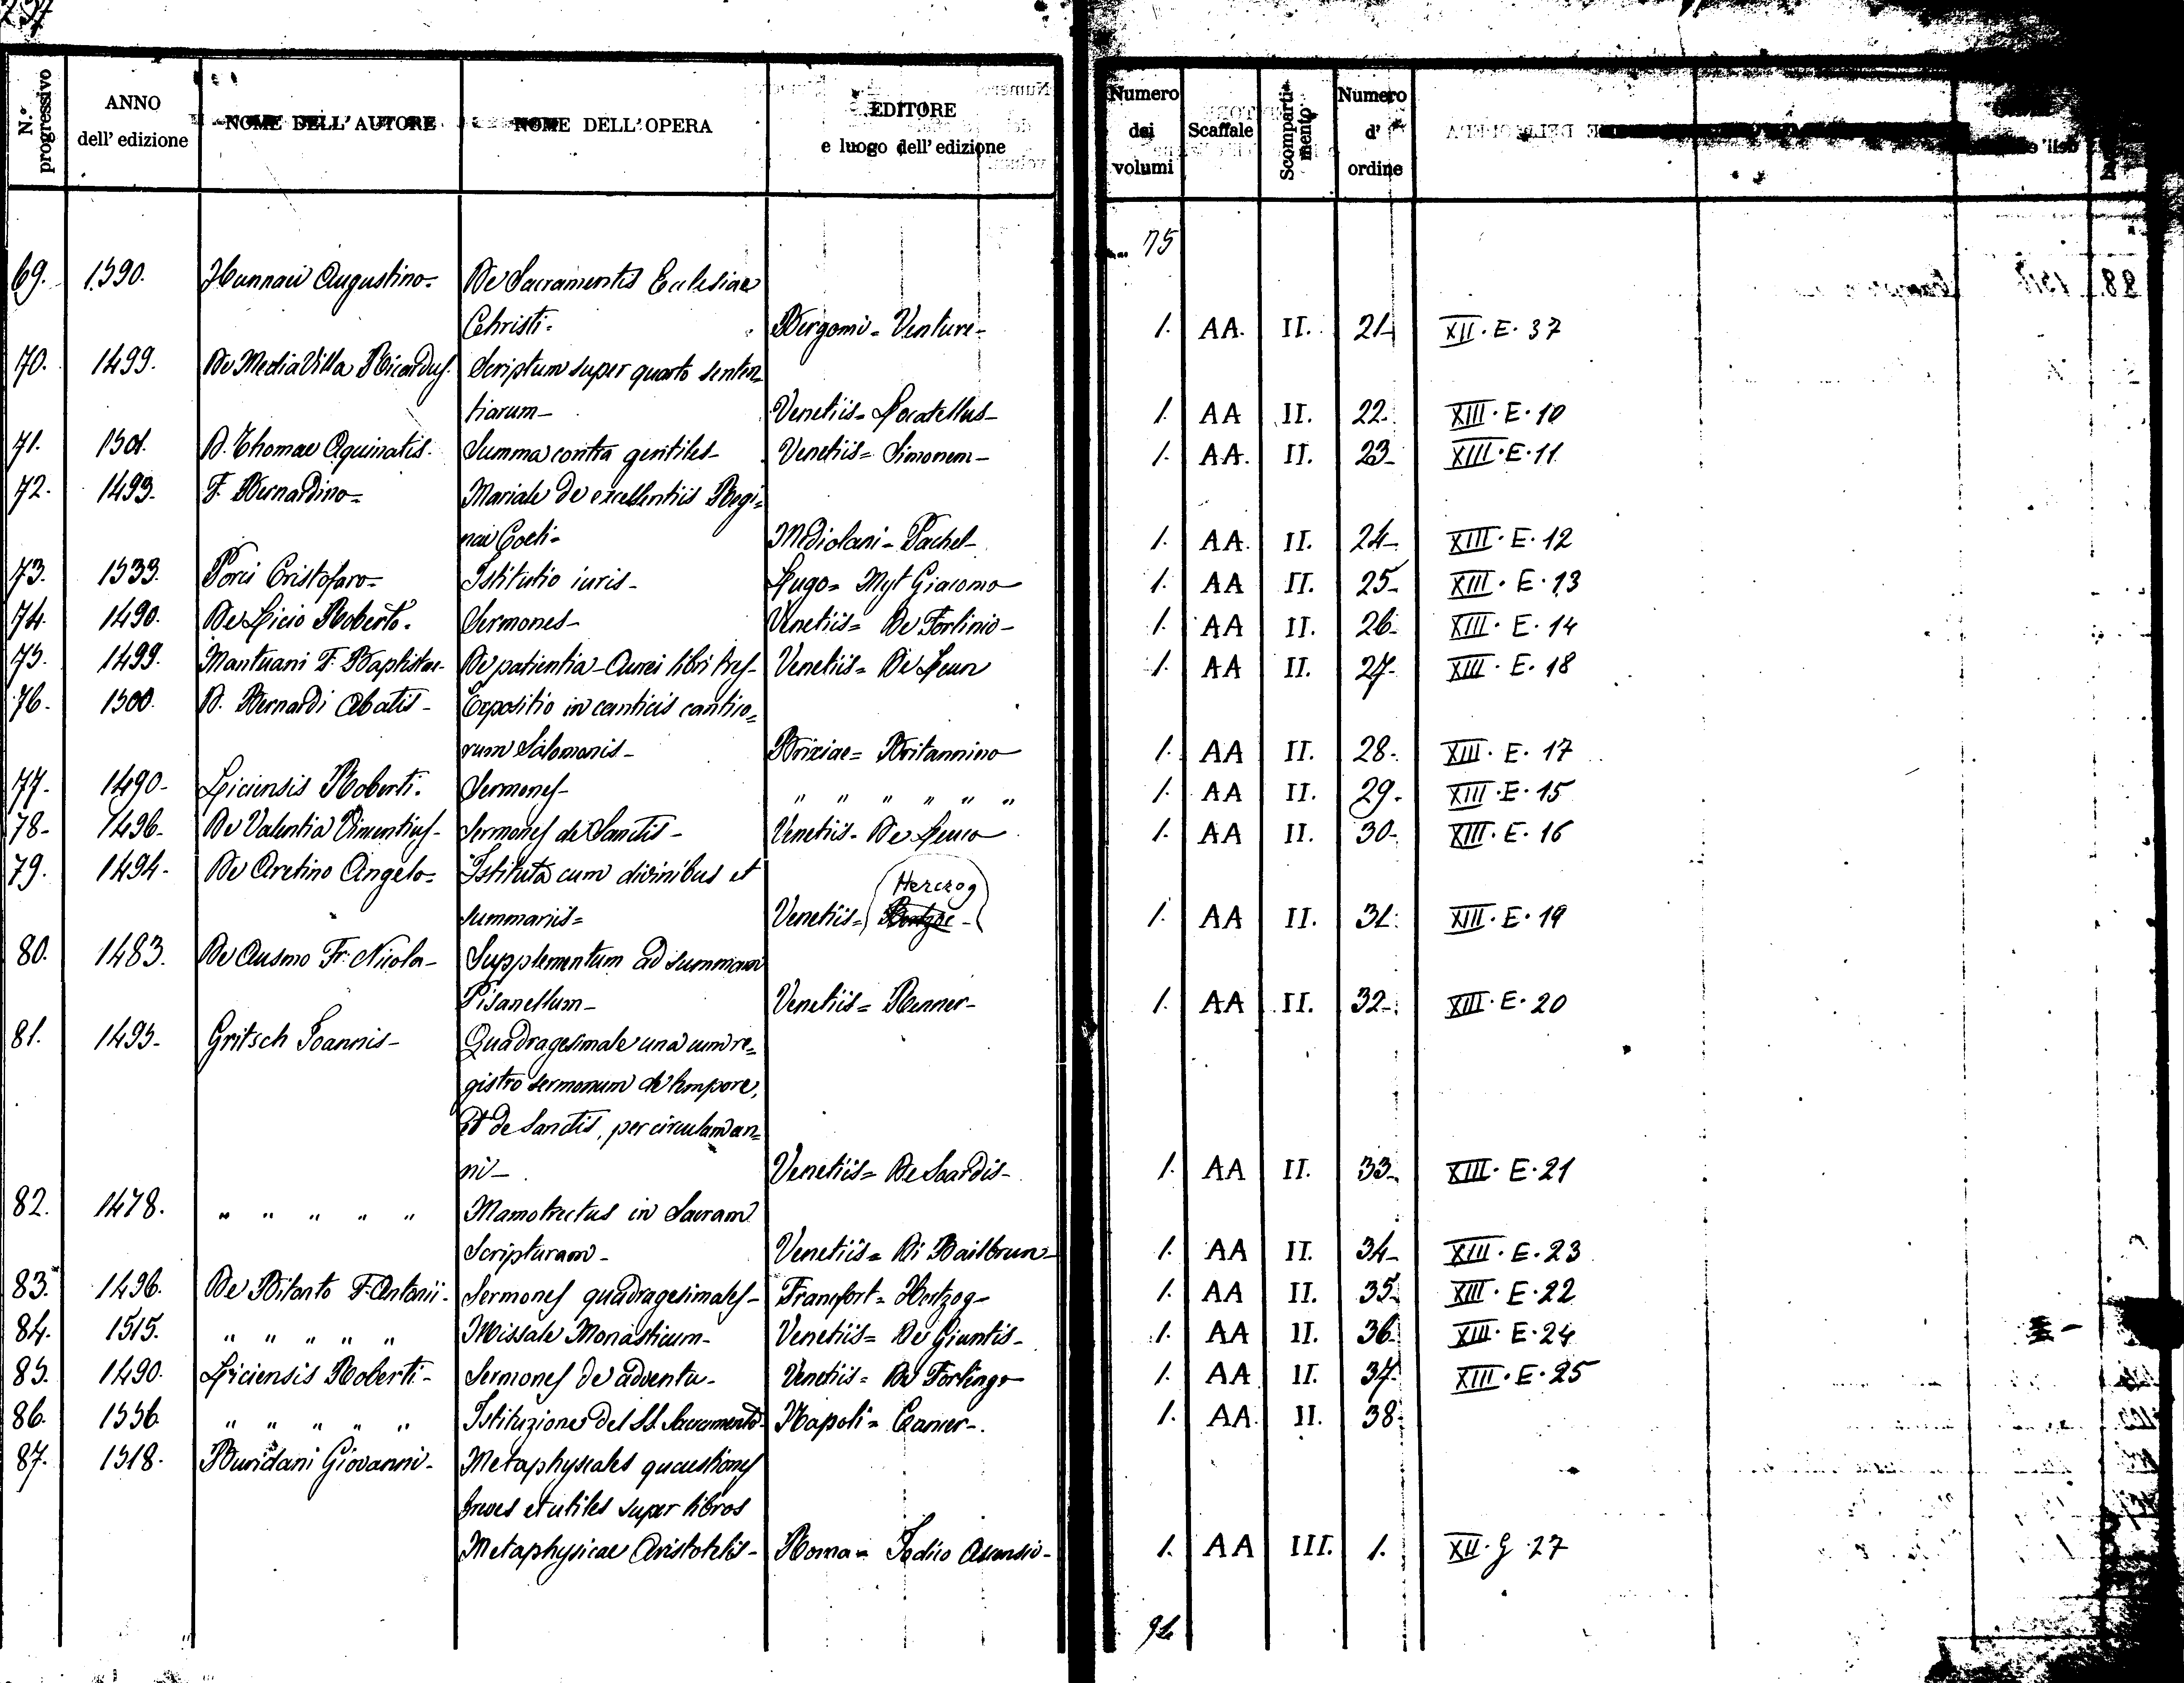 N.º progressivo | ANNO dell' edizione | NOME DELL' AUTORE | NOME DELL' OPERA | EDITORE e luogo dell' edizione | Numero dei volumi | Scaffale | Scomparti-mento | Numero d' ordine
75
69. 1590. Hunnaei Augustino= De Sacramentis Eclesiae
Christi= Bergomi= Venture- 1. AA. II. 21- XII. E. 37
70. 1499. De Media Villa Ricardus. Scriptum super quarto senten=
tiarum- Venetiis= Locatellus- 1. AA II. 22. XIII. E. 10
71. 1501. D. Thomae Aquinatis. Summa contra gentiles- Venetiis= Simonem- 1. AA. II. 23- XIII. E. 11
72. 1493. F. Bernardino= Mariale de excellentiis Regi=
nae Coeli= Mediolani= Pachel- 1. AA. II. 24- XIII. E. 12
73. 1533. Porci Cristofaro= Istitutio iuris- Lugo= Myt Giacomo 1. AA II. 25- XIII. E. 13
74. 1490. De Licio Roberto. Sermones- Venetiis= De Forlinio- 1. AA II. 26- XIII. E. 14
75. 1499. Mantuani F. Baptistae- De patientia- Aurei libri tres- Venetiis= De Leun 1. AA II. 27- XIII. E. 18
76- 1500. D. Bernardi Abatis- Expositio in canticis cantico=
rum Salomonis- Brixiae= Britannino 1. AA II. 28- XIII. E. 17
77- 1490- Liciensis Roberti. Sermones- " " " " " " 1. AA II. 29- XIII. E. 15
78- 1496- De Valentia Vimentius- Sermones de Sanctis- Venetiis- De Leuco 1. AA II. 30- XIII. E. 16
79. 1494- De Aretino Angelo= Istituta cum divinibus et Herczog
summariis= Venetiis= 1. AA II. 31. XIII. E. 19
80. 1483. De Ausmo Fr. Nicola- Supplementum ad summam
Pisanellum- Venetiis= Renner- 1. AA II. 32- XIII. E. 20
81. 1495- Gritsch Ioannis- Quadragesimale una cum re=
gistro sermonum de tempore,
et de Sanctis, per circulum an=
ni- Venetiis= De Soardis- 1. AA II. 33- XIII. E. 21
82. 1478. " " " " " Mamotrectus in Sacram
Scripturam- Venetiis= Di Bailbrun- 1. AA II. 34- XIII. E. 23
83. 1496. De Bitonto F. Antonii- Sermones quadragesimales- Francfort= Hertzog- 1. AA II. 35- XIII. E. 22
84. 1515. " " " " " Missale Monasticum- Venetiis= De Giuntis- 1. AA II. 36- XIII. E. 24
85. 1490. Liciensis Roberti- Sermones de adventu- Venetiis= De Forlingo 1. AA II. 37- XIII. E. 25
86. 1556 " " " " " Istituzione del SS. Sacramento- Napoli= Caner-. 1. AA. II. 38-
87. 1518. Buridani Giovanni- Metaphyseales quaestiones
breves et utiles super libros
Metaphysicae Aristotelis- Roma= Iodico Ascensio- 1. AA III. 1. XII. G 27
91.